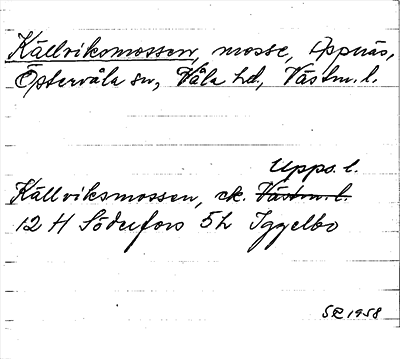 Källviksmossen, mosse, Oppnäs,
Östervåla sn, Våla hd, Västm. l.
Upps. l.
Källviksmossen, ek. Västm. l.
12 H Söderfors 5h Iggelbo
SR 1958